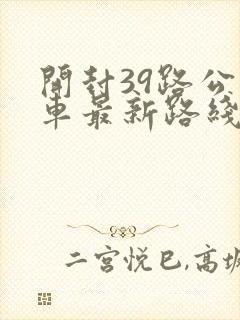 開封39路公
車最新路綫
二宮悅巳,高坂